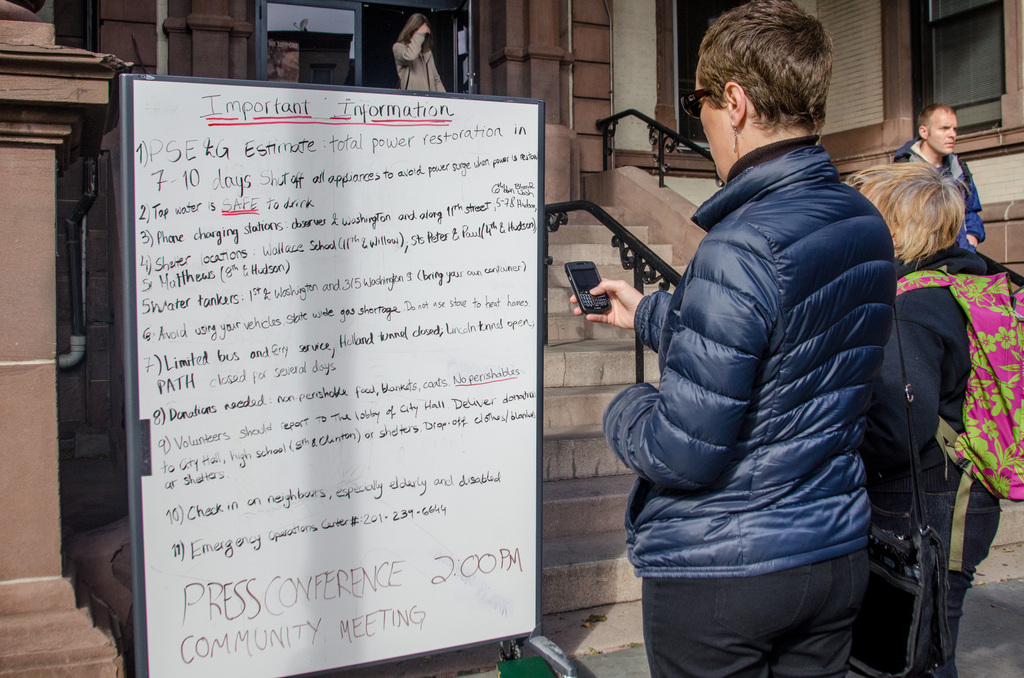 Important Information
1) PSE&G Estimate: total power restoration in
7-10 days Shut off all appliances to avoid power surge when power is restored
2) Tap water is SAFE to drink
3) Phone charging stations: observer & Washington and along 11th street, 5-7 & Hudson,
4) Shelter locations: Wallace School (11th & Willow), Sts Peter & Paul (4th & Hudson)
St Matthews (8th & Hudson)
5 Water tankers: 1st & Washington and 315 Washington St (bring your own container)
6 Avoid using your vehicles. State wide gas shortage. Do not use stove to heat homes.
7) Limited bus and ferry service, Holland tunnel closed, Lincoln tunnel open,
PATH closed for several days.
8) Donations needed: non-perishable food, blankets, coats. No perishables.
9) Volunteers should report to the lobby of City Hall. Deliver donations
to City Hall, high school (8th & Clinton) or shelters. Drop-off clothes/blankets
at shelters.
10) Check in on neighbours, especially elderly and disabled
11) Emergency Operations Center #: 201-239-6644
PRESS CONFERENCE 2:00 PM
COMMUNITY MEETING